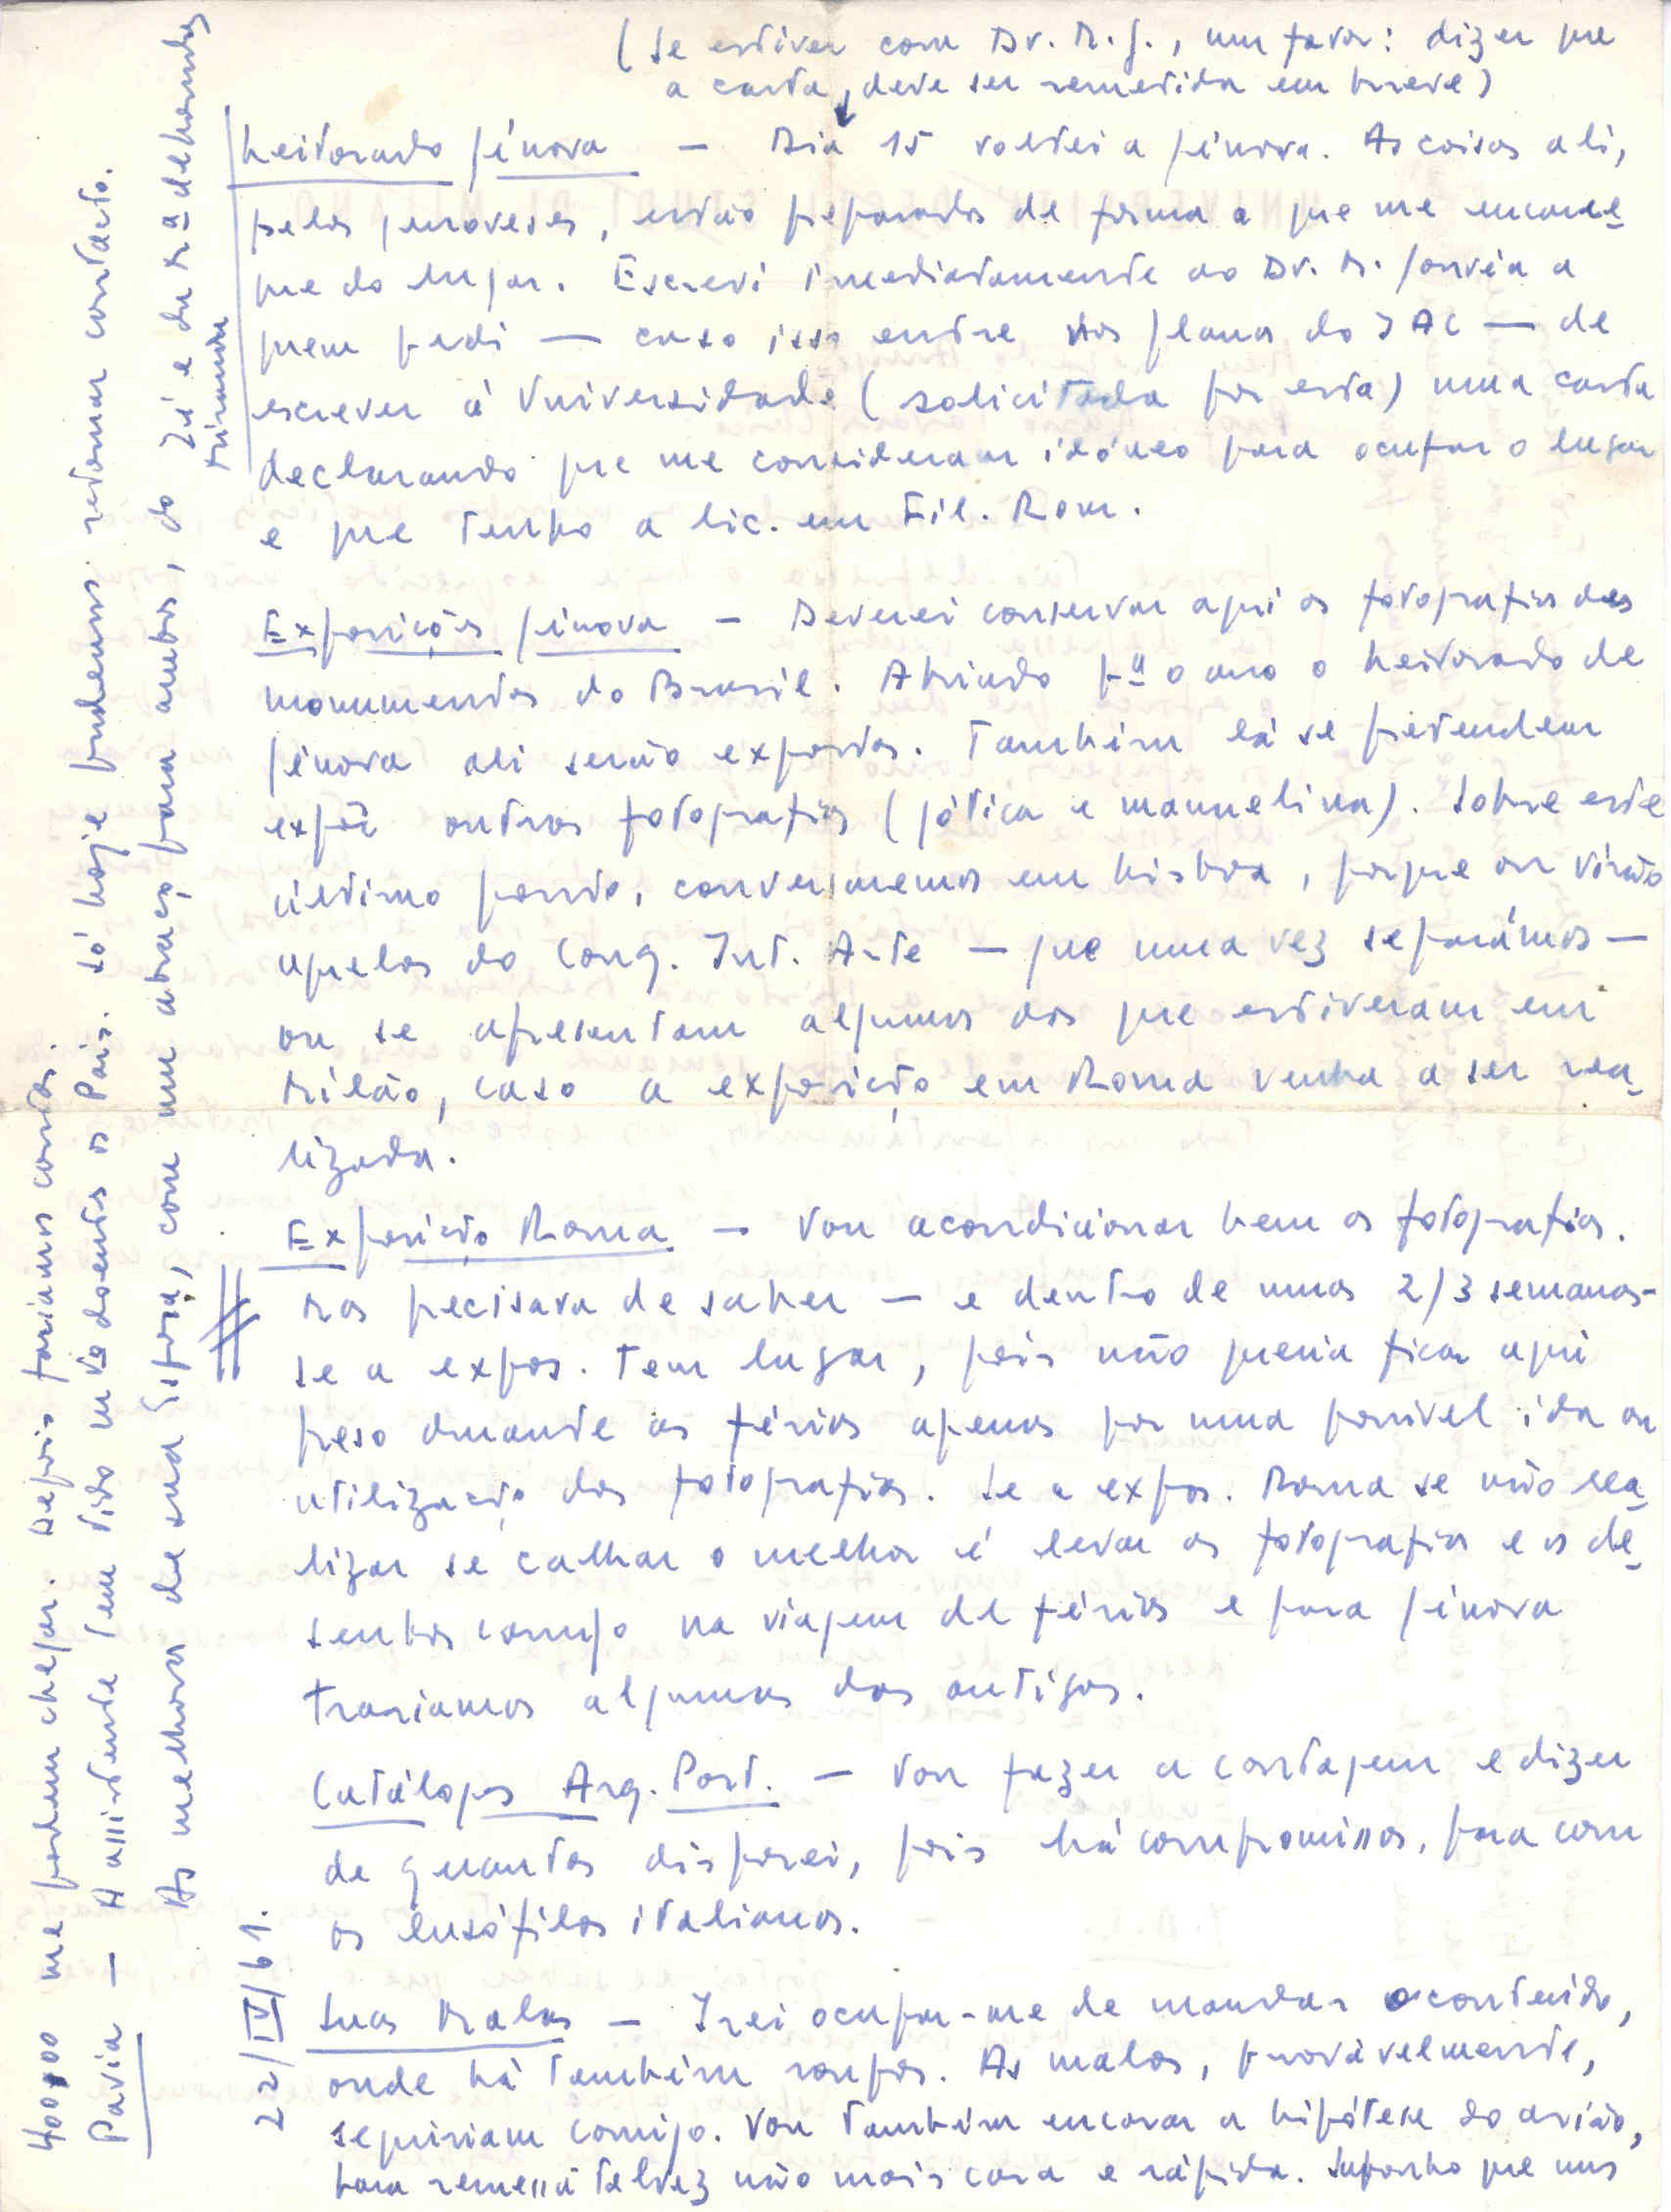 (Se estiver com Dr. M. G., um favor: dizer que
a carta, deve ser remetida em breve)
Leitorado Génova — Dia 15 voltei a Génova. As coisas ali,
pelos genoveses, estão preparadas de forma a que me encarre-
gue do lugar. Escrevi imediatamente ao Dr. M. Gouveia a
quem pedi — caso isso entre nos planos do IAC — de
escrever à Universidade (solicitada por esta) uma carta
declarando que me consideram idóneo para ocupar o lugar
e que tenho a lic. em Fil. Rom.
Exposições Génova — Deverei conservar aqui as fotografias dos
monumentos do Brasil. Abrindo pª o ano o Leitorado de
Génova ali serão expostas. Também lá se pretendem
expôr outras fotografias (gótica e manuelina). Sobre este
último ponto, conversaremos em Lisboa, porque ou virão
aquelas do Cong. Int. Arte — que uma vez separámos —
ou se apresentam algumas das que estiveram em
Milão, caso a exposição em Roma venha a ser rea-
lizada.
Exposição Roma — Vou acondicionar bem as fotografias.
Mas precisava de saber — e dentro de umas 2/3 semanas -
se a expos. tem lugar, pois não queria ficar aqui
preso durante as férias apenas por uma possível ida ou
utilização das fotografias. Se a expos. Roma se não rea-
lizar se calhar o melhor é levar as fotografias e os de-
senhos comigo na viagem de férias e para Génova
trariamos algumas das antigas.
Catálogos Arq. Port. — Vou fazer a contagem e dizer
de quantos disporei, pois há compromissos, para com
os lusófilos italianos.
Suas Malas — Irei ocupar-me de mandar o conteúdo,
onde há também roupas. As malas, provávelmente,
seguiriam comigo. Vou também encarar a hipótese do avião,
para remessa talvez não mais cara e rápida. Suponho que uns
400$00 me podem chegar. Depois fariamos contas.
Pavia — A assistente tem tido mtº doentes os Pais. Só hoje pudemos retomar contacto.
As melhoras de sua Esposa, com um abraço para ambos, do Zé e da Mª de Lourdes
Miranda
22/IV/61.